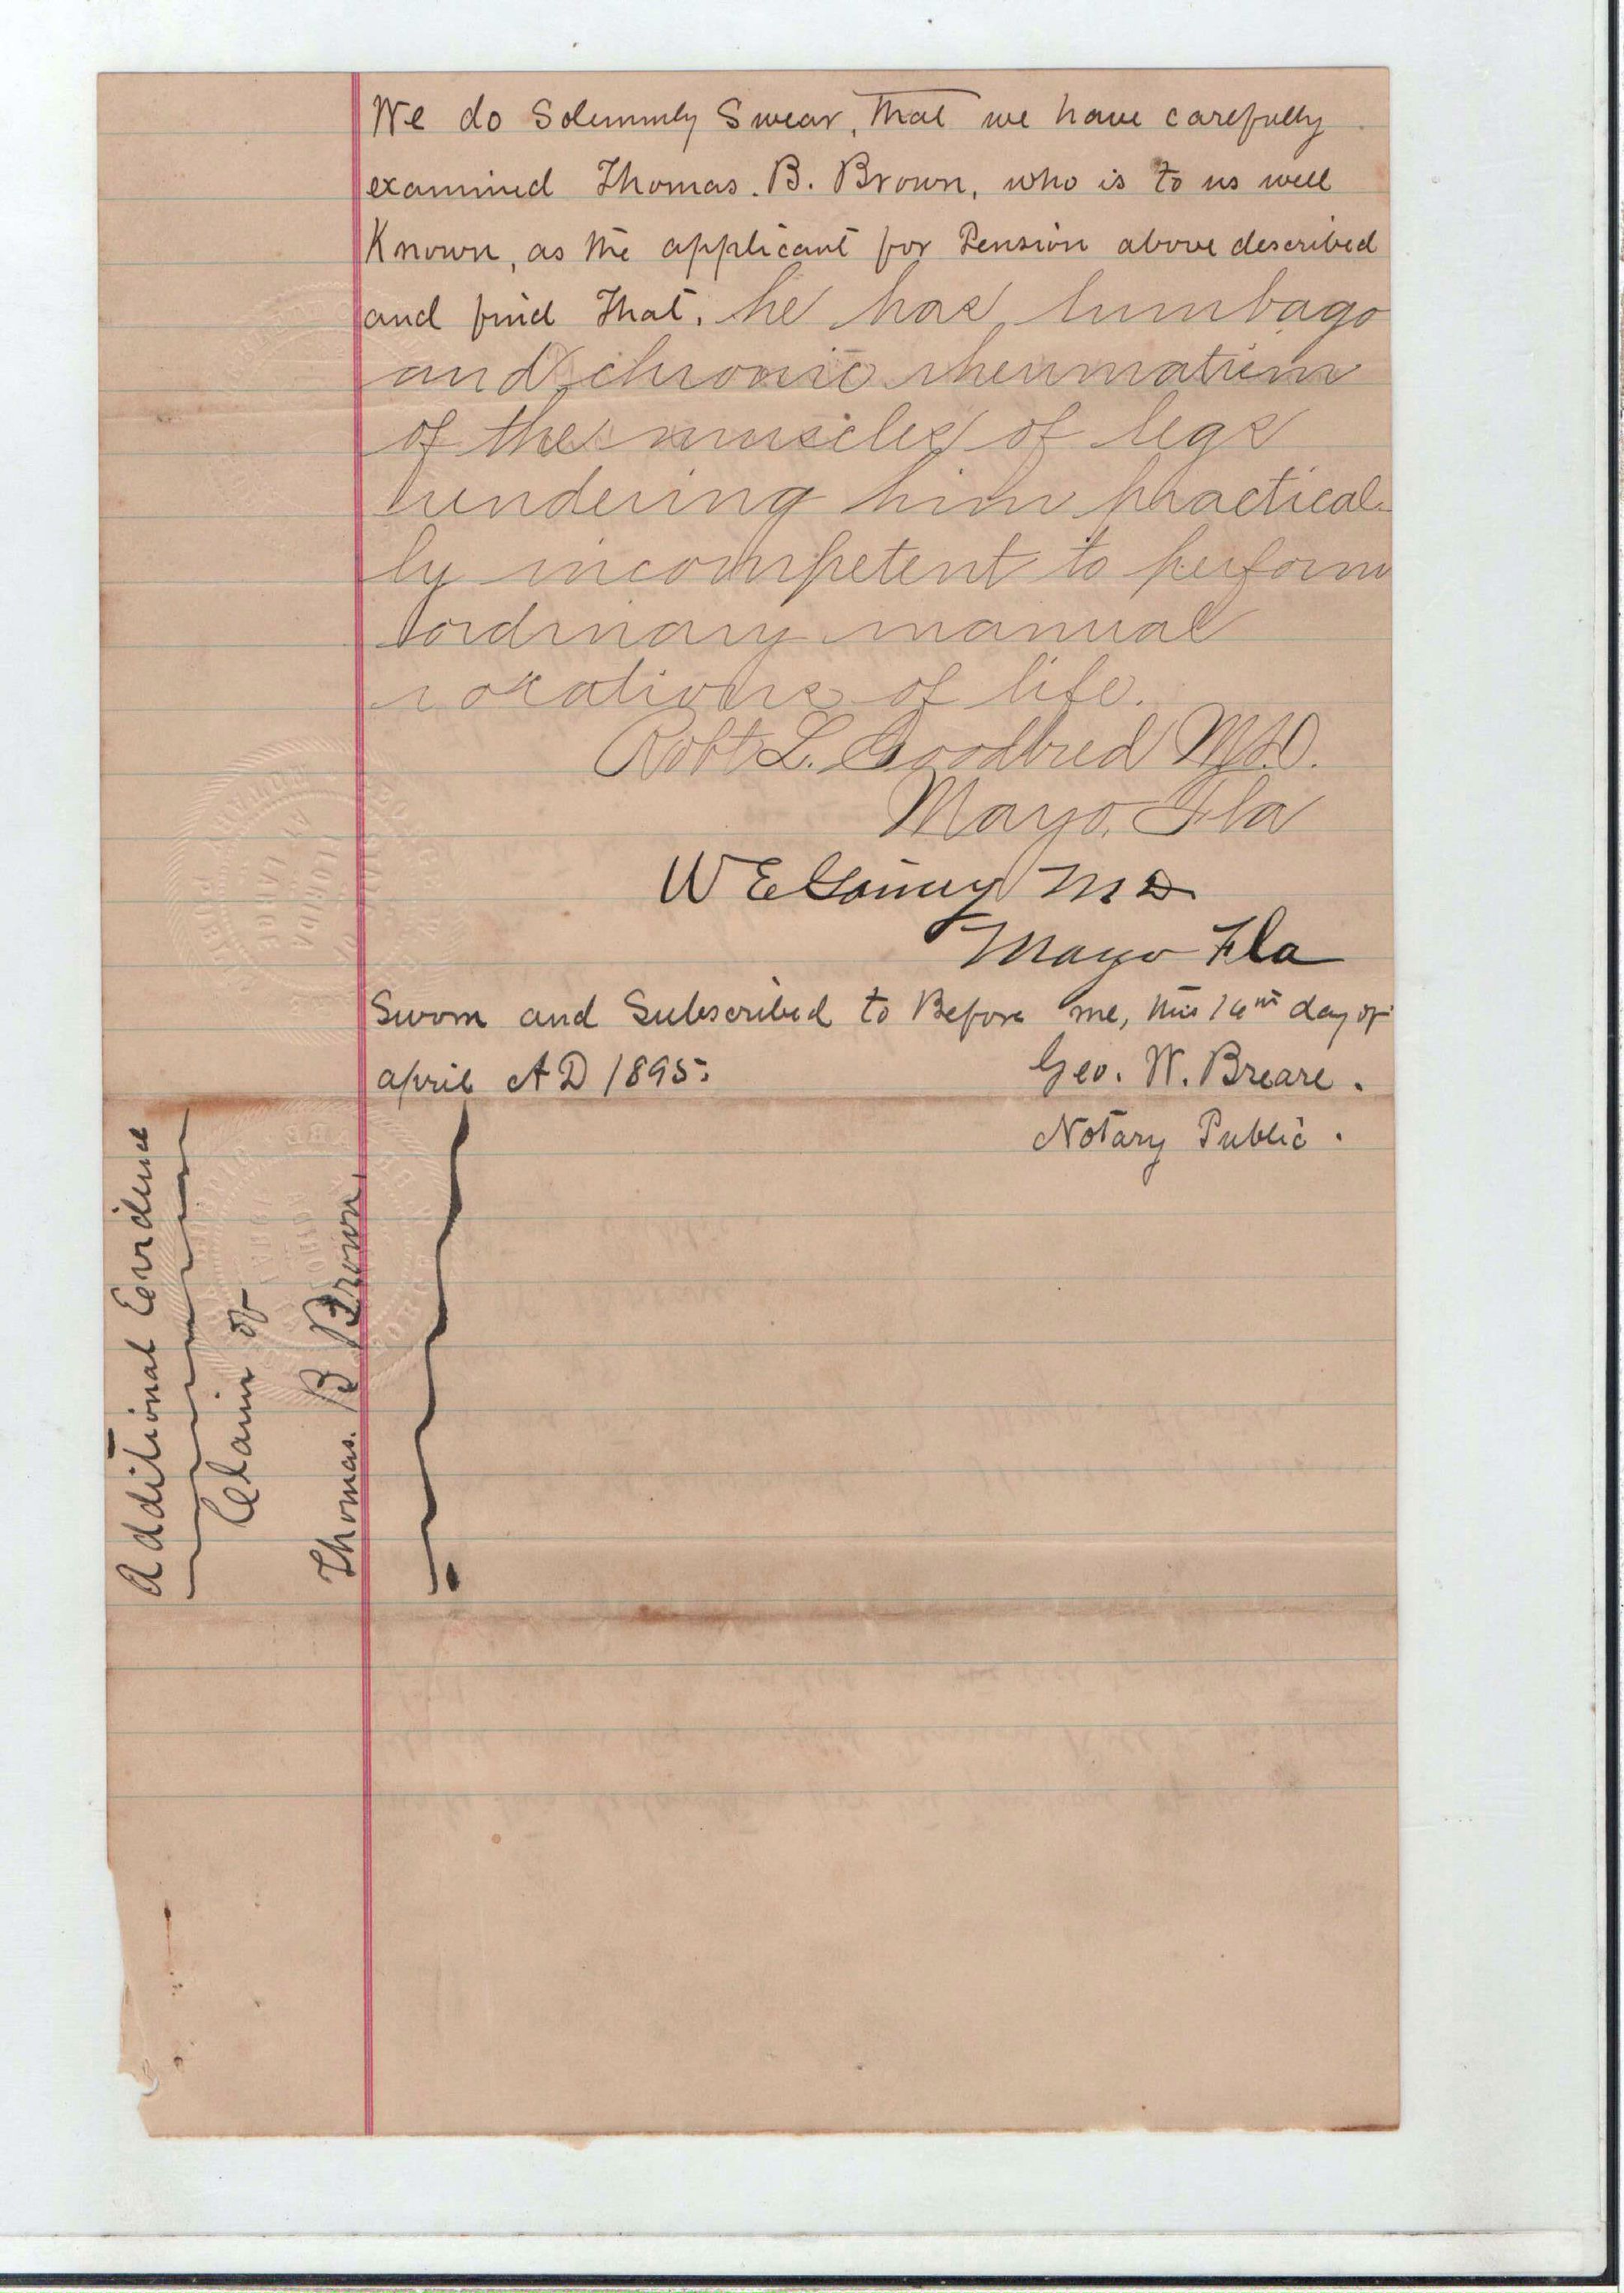 We do Solemnly Swear, that we have carefully
examined Thomas. B. Brown, who is to us well
Known, as the applicant for Pension above described
and find That. he has lumbago
and chronic rheumatism
of the muscles of legs
rendering him practical-
ly incompetent to perform
ordinary manual
vocations of life.
Robt L. Goodbred M.D.
Mayo, Fla
W E MD
Mayo Fla
Sworn and Subscribed to Before me, this day of
april AD 1895.
Geo. W. Breare.
Notary Public.
Additional Evidence
Claim of
Thomas. B Brown,
NOTARY PUBLIC
FLORIDA
AT LARGE